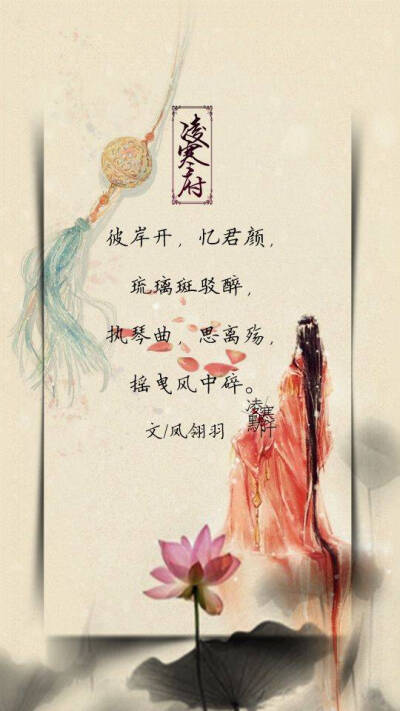 凌寒府
彼岸开，忆君颜，
琉璃斑驳醉，
执琴曲，思离殇，
摇曳风中碎。
文/凤翎羽
凌寒